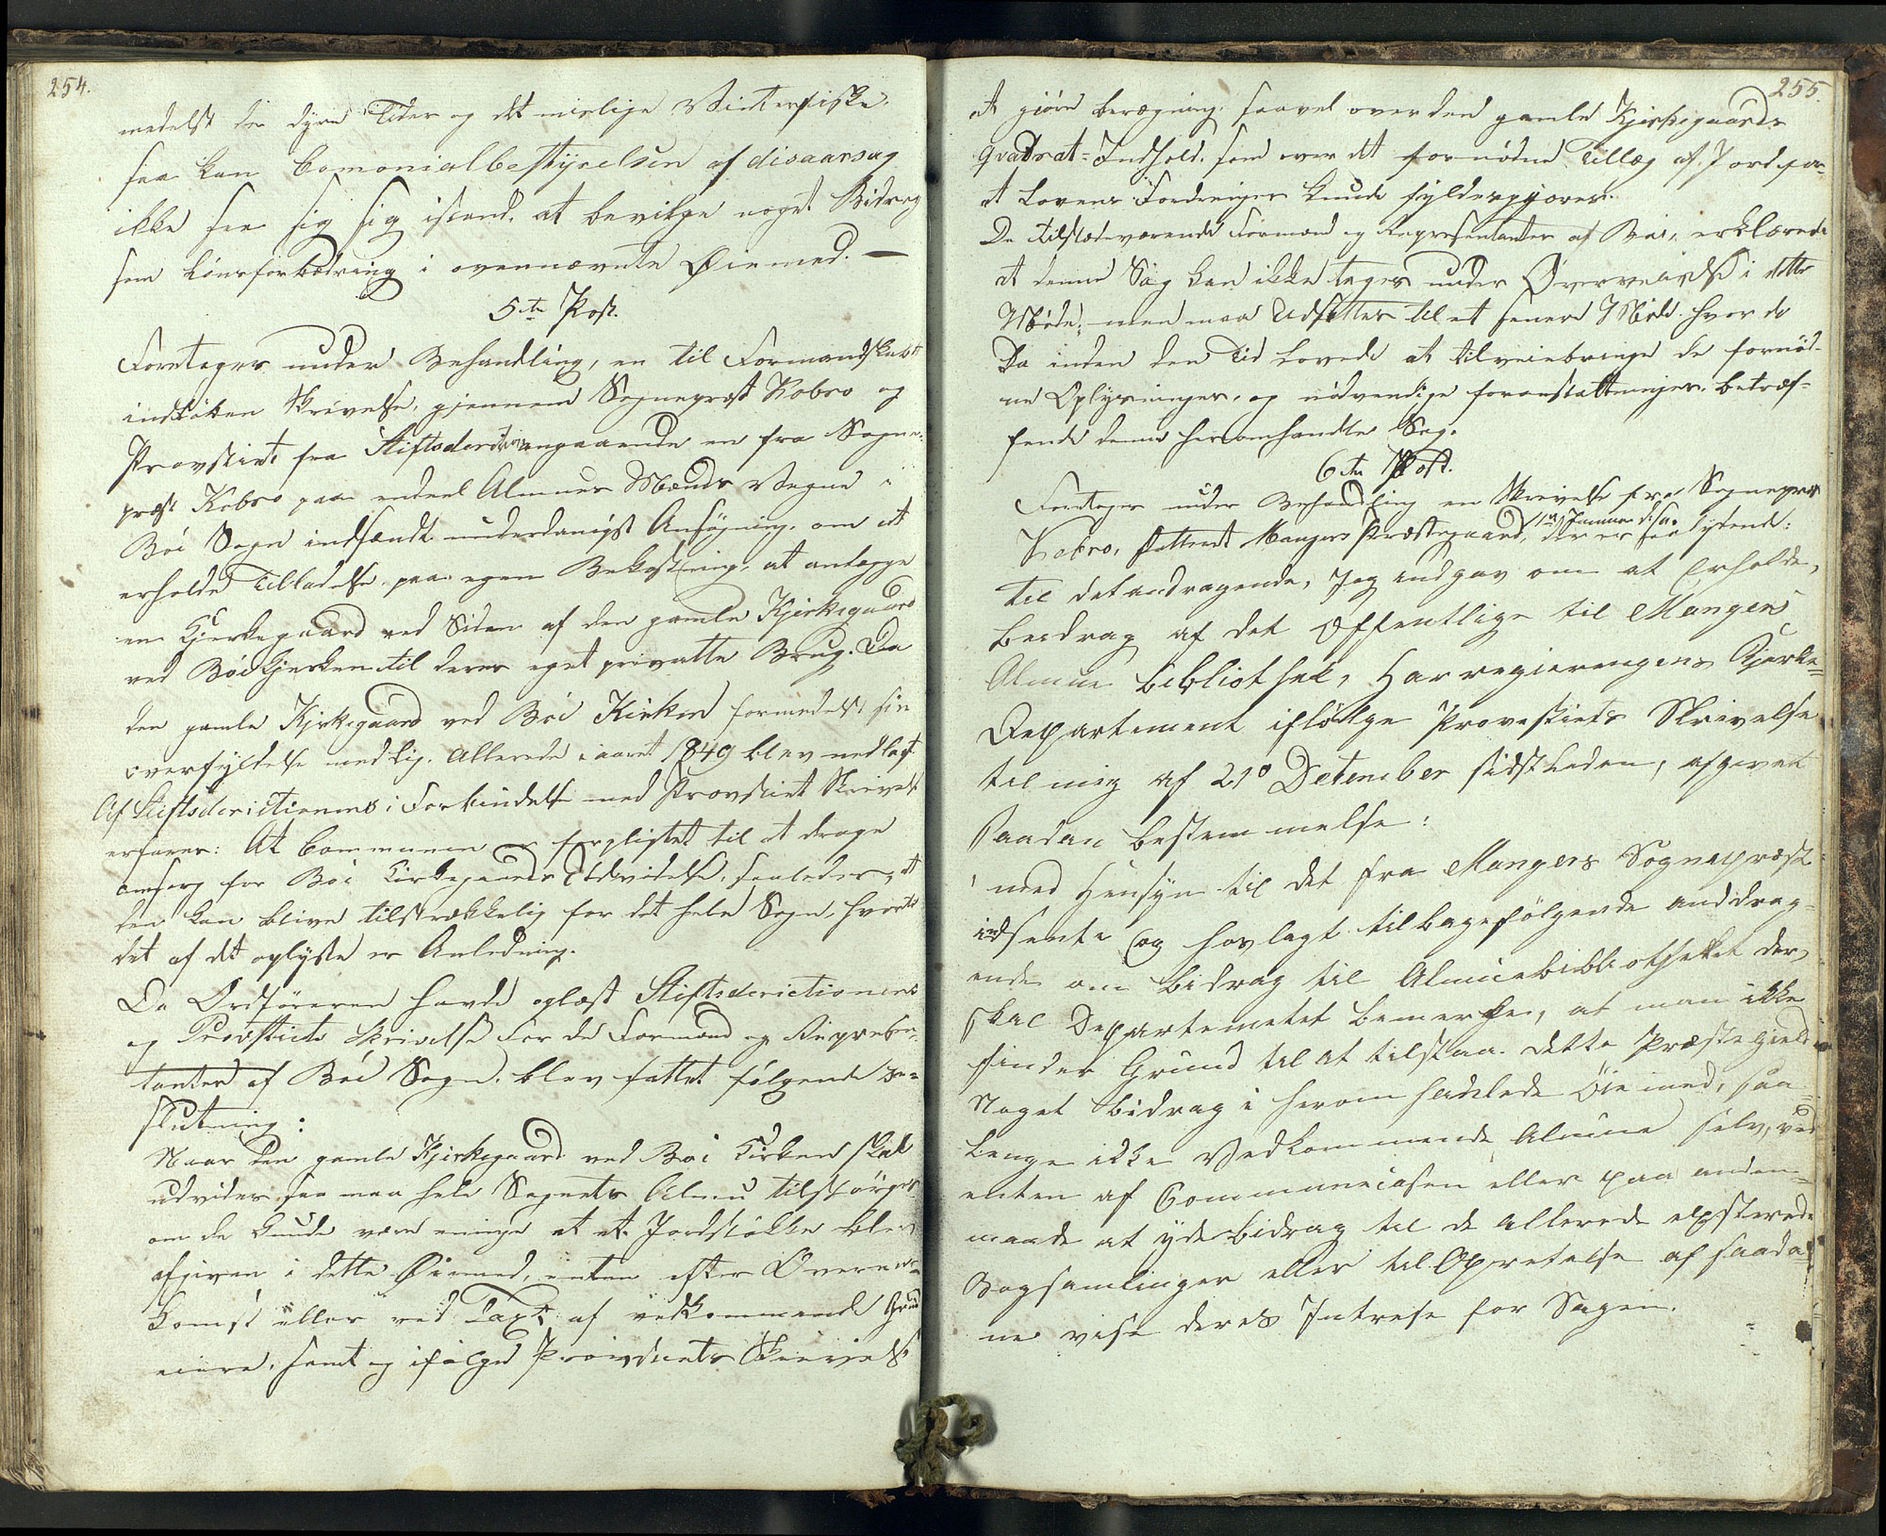 254.
medelst de dyre Tider og det mislige Vinterfiske,
saa kan Comonialbestyrelsen af disaarsag
ikke see sig sig istand, at bevilge noget Bidrag
som Lønsforbedring i ovennævnte Øiemed. —
5te Post.
Foretages under Behandling, en til Formandskabet
indkomen Skrivelse, gjennem Sognepræst Kobro og
Provstiet fra Stiftsderictionen angaaende en fra Sogne-
præst Kobro paa endeel Almues Mænds Vegne i
Bøe Sogn indsendt underdanigst Ansøgning, om at
erholde Tilladelse paa egen Bekostning, at anlægge
en Kjerkegaard ved Siden af den gamle Kjirkegaard
ved Bøe Kjerken til deres eget privatte Brug. Da
den gamle Kjirkegaard ved Bøe Kirken formedelst sin
overfyldelse med Lig, allerede i aaret 1849 blev nedlagt.
Af Stiftsderictionens i Forbindelse med Provstiet Skrivelse
erfares: At Communen er forpligtet til at drage
omsorg for Bøe Kirkegaards Udvidelse, saaledes, at
den kan blive tilstrækkelig for det hele Sogn, hvortil
det af det oplyste er Anledning.
Da Ordføreren havde oplæst Stiftsderictionens
og Provstiets Skrivelse for de Formænd og Repræsen-
tanter af Bøe Sogn, blev fattet følgende Be-
slutning:
Naar den gamle Kjirkegaard ved Bøe Kirken skal
udvides saa maa hele Sognets Almue tilspørges
om de kunde være eenige at et Jordstøkke blev
afgiven i dette Øiemed, enten efter Overeens-
komst eller ved Taxt af vedkommende Grund
eiere, samt og ifølge Provstiets Skrivelse
255.
at gjøre beregning, saavel over den gamle Kjirkegaards
Qvadrat-Indhold, som over det fornødne Tillæg af Jord for
at Lovens Fordringer kunde fyldesgjøres.
De tilstedeværende Formænd og Representanter af Bøe, erklærede
at denne Sag kan ikke tages under Overveielse i dette
Møde, men maa Udsættes til et senere Møde hvor de
Da inden den Tid lovede at tilveiebringe de fornød-
ne Oplysninger, og nødvendige foranstaltninger, betræf-
fende denne her omhandlte Sag.
6te Post.
Foretages under Behandling en Skrivelse fra Sognepræst
Kobro, datteret Manger Præstegaard, 1ste Januar d. a. der er saa lydende:
Til det andragende, Jeg indgav om at Erholde,
beidrag af det Offentlige til Mangers
Almue Bibliothek, Har regieringens Kjerke-
Departement ifølge Provestiets Skrivelse
til mig af 21de Desember sidstleden, afgivet
Saadan bestemmelse:
med Hensyn til det fra Mangers Sognepræst
indsente og hoslagt tilbagefølgende anddrag-
ende om bidrag til Almuebibliotheket der,
skal Departemetet bemerke, at man ikke
finder Grund til at tilstaa dette Præstegield
Noget bidrag i herom handlede Øiemed, saa-
lenge ikke Vedkommende Almue selv, ved
enten af Communecasen eller paa anden
maade at yde bidrag til de allerede exsisterede
Bogsamlinger eller til Opretelse af saada-
ne vise deres Intrese for Sagen.